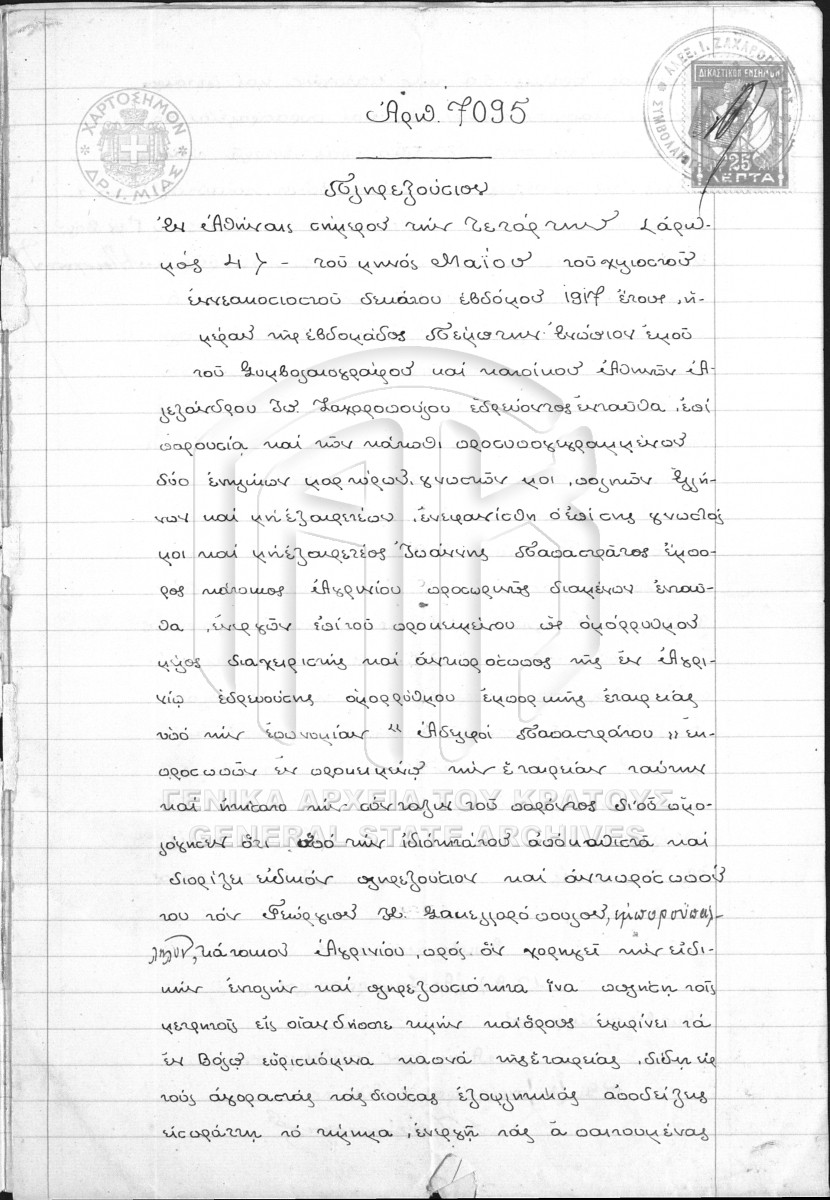 ΧΑΡΤΟΣΗΜΟΝ
ΔΡ. Ι. ΜΙΑΣ
ΑΛΕΞ. Ι. ΖΑΧΑΡΟΠ
ΣΥΜΒΟΛΑΙΟ
ΔΙΚΑΣΤΙΚΟΝ ΕΝΣΗΜΟΝ
25
ΛΕΠΤΑ
Ἀριθ. 7095
Πληρεξούσιον
Ἐν Ἀθήναις σήμερον τὴν τετάρτην
4) - τοῦ μηνὸς Μαΐου τοῦ χιλιοστοῦ
ἐννεακοσιοστοῦ δεκάτου ἑβδόμου 1917 ἔτους, ἡ-
μέραν τῆς ἑβδομάδος Πέμπτην ἐνώπιον ἐμοῦ
τοῦ Συμβολαιογράφου καὶ κατοίκου Ἀθηνῶν Ἀ-
λεξάνδρου Ἰω. Ζαχαροπούλου ἑδρεύοντος ἐνταῦθα, ἐπὶ
παρουσίᾳ καὶ τῶν κάτωθι προσυπογεγραμμένων
δύο ἐνηλίκων μαρτύρων, γνωστῶν μοι, πολιτῶν Ἑλλή-
νων καὶ μὴ ἐξαιρετέων, ἐνεφανίσθη ὁ ἐπίσης γνωστός
μοι καὶ μὴ ἐξαιρετέος Ἰωάννης Παπαστράτος ἔμπο-
ρος κάτοικος Ἀγρινίου προσωρινῶς διαμένων ἐνταῦ-
θα, ἐνεργῶν ἐπὶ τοῦ προκειμένου ὡς ὁμόρρυθμον
μέλος διαχειριστὴς καὶ ἀντιπρόσωπος τῆς ἐν Ἀγρι-
νίῳ ἑδρευούσης ὁμορρύθμου ἐμπορικῆς ἑταιρείας
ὑπὸ τὴν ἐπωνυμίαν "Ἀδελφοὶ Παπαστράτου" ἐκ-
προσωπῶν ἐν προκειμένῳ τὴν ἑταιρείαν ταύτην
καὶ ᾐτήσατο τὴν σύνταξιν τοῦ παρόντος δι' οὗ ὡμο-
λόγησεν ὅτι ὑπὸ τὴν ἰδιότητά του ἀποκαθιστᾷ καὶ
διορίζει εἰδικὸν πληρεξούσιον καὶ ἀντιπρόσωπόν
του τὸν Γεώργιον Σακελλαρόπουλον, ἐμποροϋπάλ-
ληλον, κάτοικον Ἀγρινίου, πρὸς ὃν χορηγεῖ τὴν εἰδι-
κὴν ἐντολὴν καὶ πληρεξουσιότητα ἵνα πωλήσῃ τοῖς
μετρητοῖς εἰς οἱανδήποτε τιμὴν καὶ ὅρους ἐγκρίνει τὰ
ἐν Βόλῳ εὑρισκόμενα καπνὰ τῆς ἑταιρείας, δίδῃ εἰς
τοὺς ἀγοραστὰς τὰς δεούσας ἐξοφλητικὰς ἀποδείξεις
εἰσπράττῃ τὸ τίμημα, ἐνεργῇ τὰς ἀπαιτουμένας
ΓΕΝΙΚΑ ΑΡΧΕΙΑ ΤΟΥ ΚΡΑΤΟΥΣ
GENERAL STATE ARCHIVES